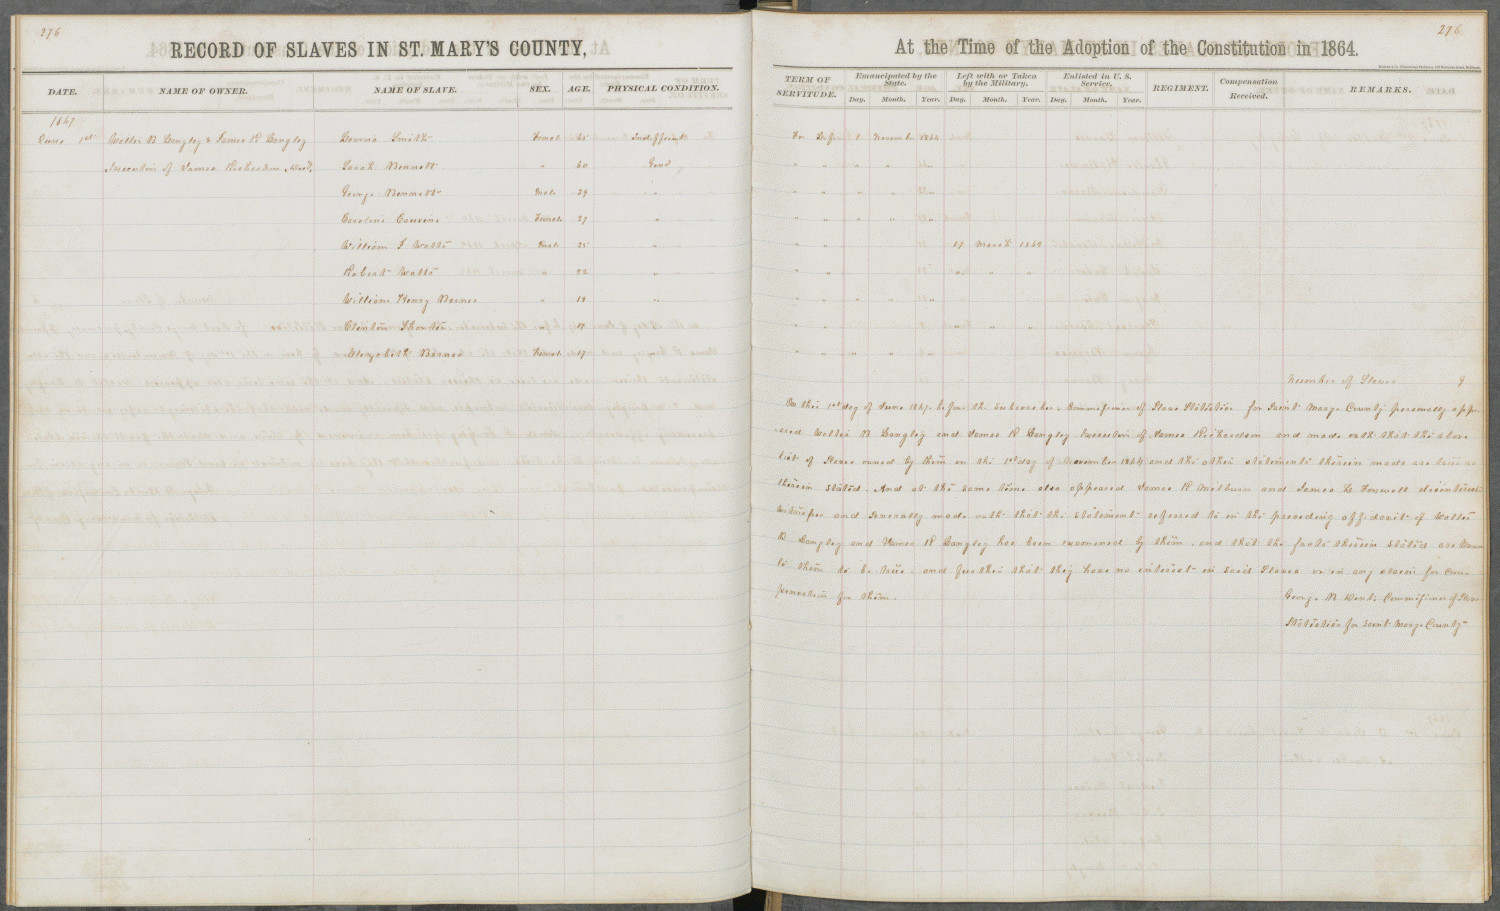 276
RECORD OF SLAVES IN ST. MARY'S COUNTY,
DATE. NAME OF OWNER. NAME OF SLAVE. SEX. AGE. PHYSICAL CONDITION.
1867
June 1st Walter B Langley & James R Langley Smith Femal Indifferent
Executors of James Richardson Sarah Bennett " 60 Good
George Bennett Male 29 "
Caroline Cousins Female 27 "
William J Watts Male 25 "
Robert Watts " 22 "
William Henry Barnes " 19 "
Clinton " 18 "
Elizabeth Barnes Female 17 "
276
At the Time of the Adoption of the Constitution in 1864.
TERM OF SERVITUDE. Emancipated by the State. Left with or Taken by the Military. Enlisted in U. S. Service. REGIMENT. Compensation Received. REMARKS.
Day. Month. Year. Day. Month. Year. Day. Month. Year.
For Life 1 November 1864
" " " " "
" " " " "
" " " " "
" " 17 March 1864
" " " "
" " " " "
" " " "
" " " " "
Number of Slaves 9
On this 1st day of June 1867 before the subscriber, Commissioner of Slave Statistics for Saint Marys County personally appe-
-ared Walter B Langley and James R Langley Executors of James Richardson and made oath that the above
list of Slaves owned by them on the 1st day of November 1864 and the other statements therein made are true as
therein stated. And at the same time also appeared James R Milburn and James L Foxwell disinterested
witnesses and severally made oath that the statement referred to in the preceding affidavit of Walter
B Langley and James R Langley has been examined by them, and that the facts therein stated are known
to them to be true, and further that they have no interest in said Slaves or in any claim for Com-
pensation for them.
George B Dent, Commissioner of Slave
Statistics for Saint Marys County